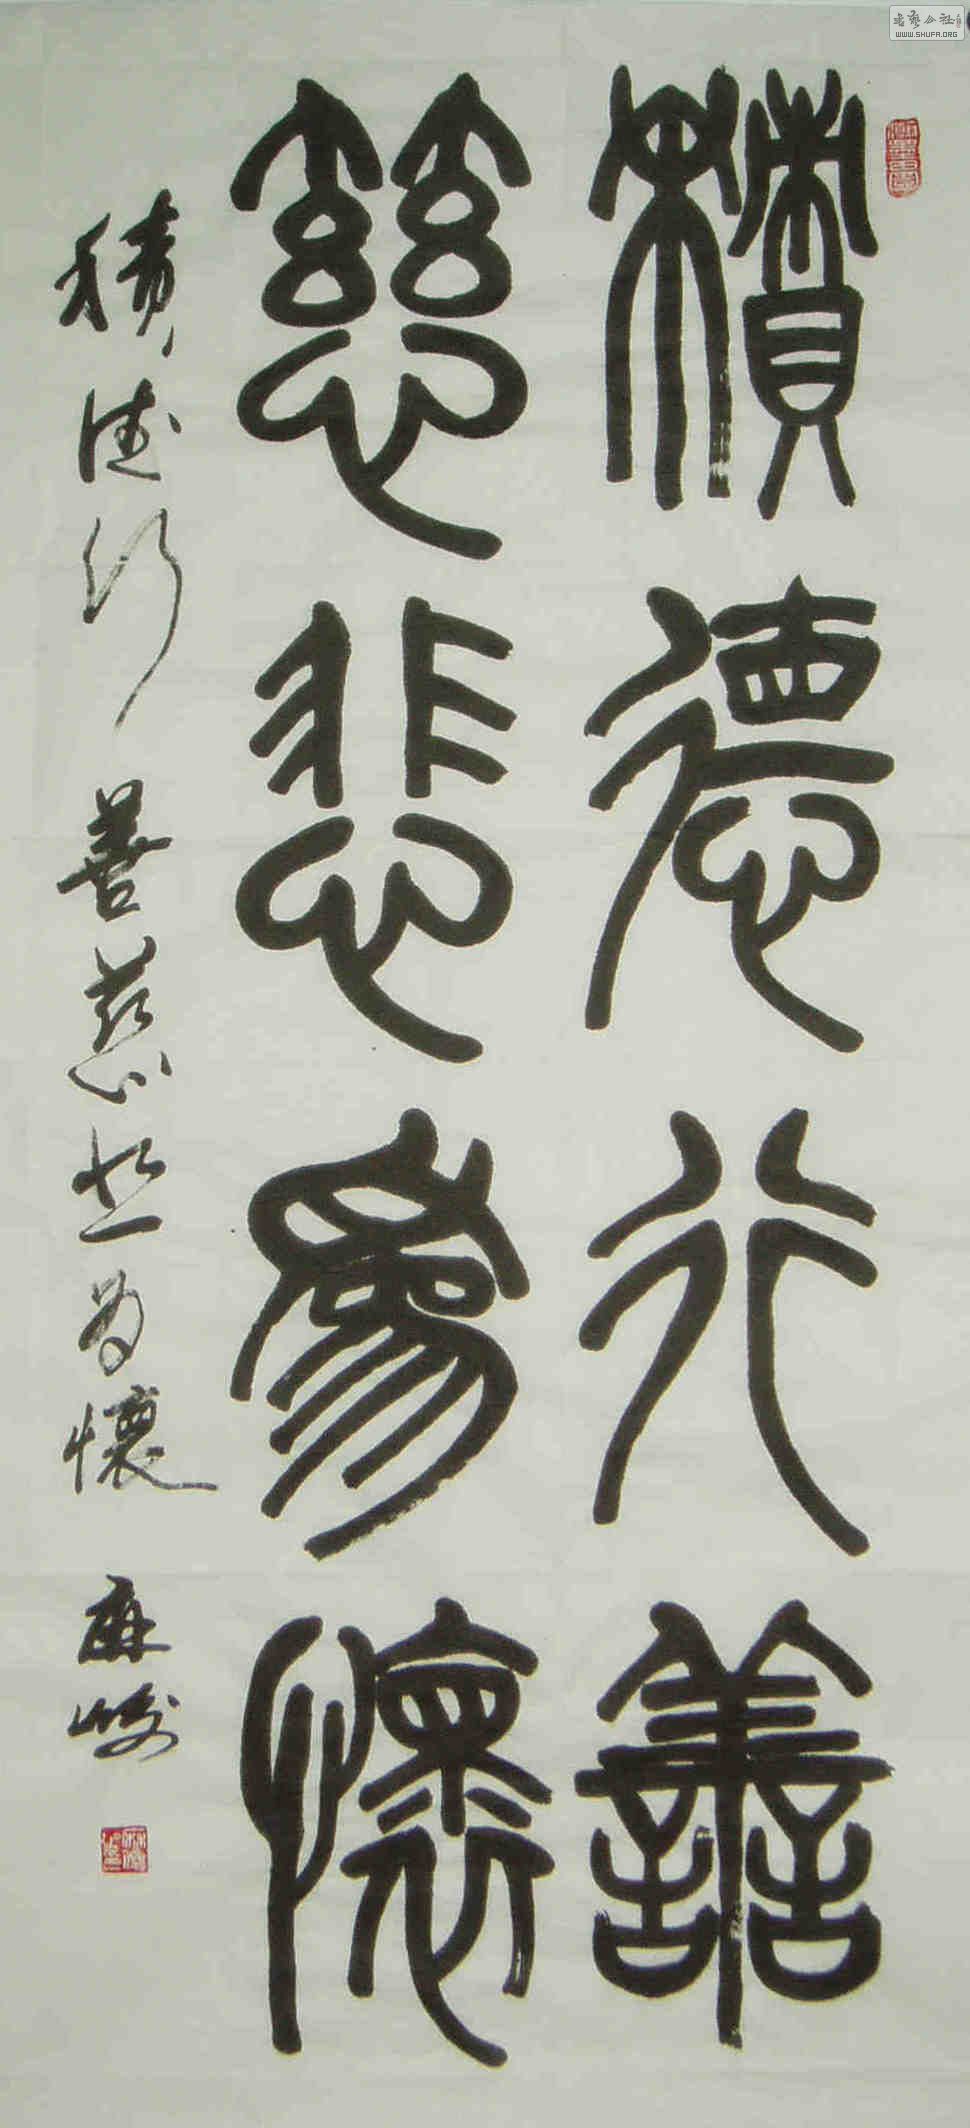 積德行善
慈悲為懷
積德行善慈悲為懷 麻峻
書藝公社
WWW.SHUFA.ORG